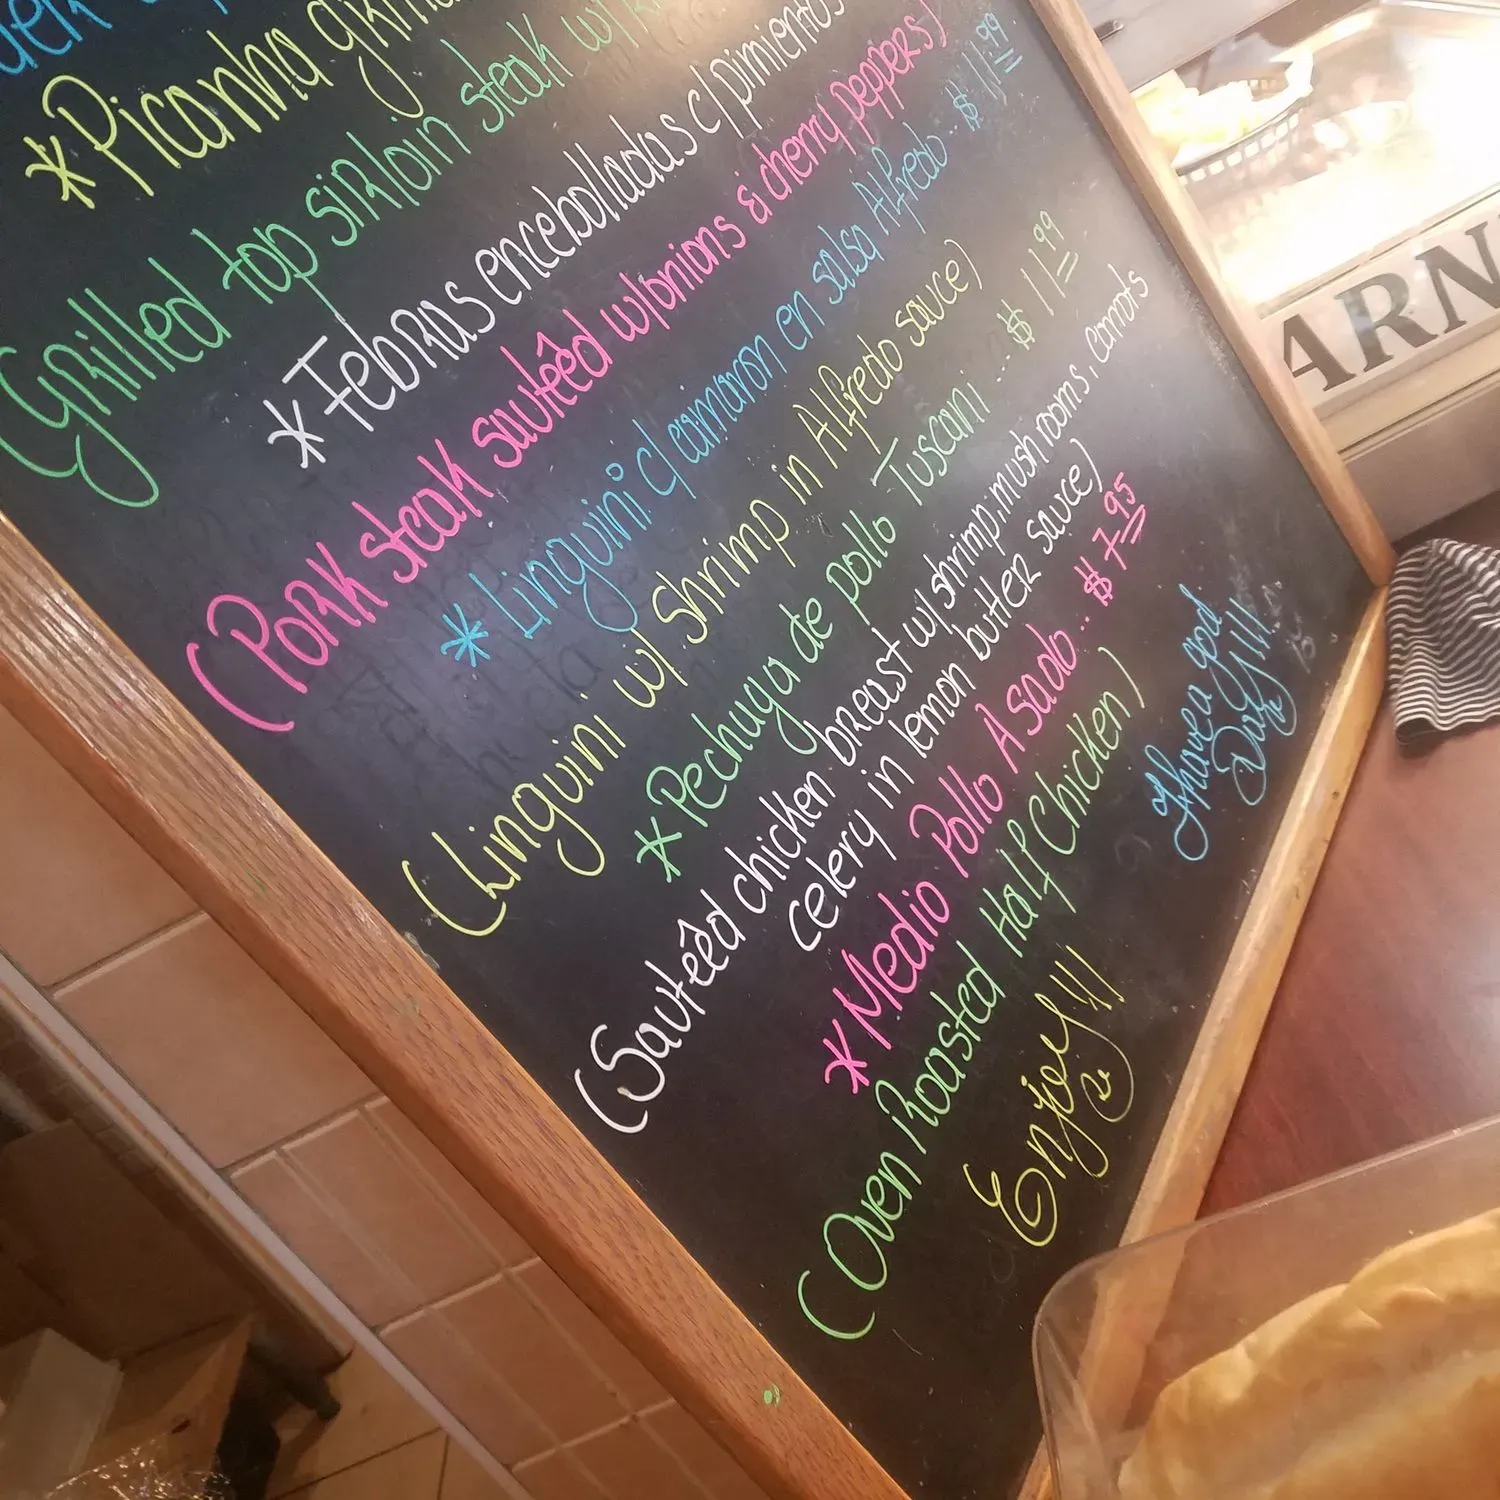 *Picanha
Grilled top sirloin steak w/
*Febras encebolladas c/pimientos
(Pork steak sauteêd w/onions & cherry peppers)
*Linguini c/camaron en salsa Alfredo.. $11.99
(Linguini w/ Shrimp in Alfredo sauce)
*Pechuga de pollo Tuscani ... $11.99
(Sauteêd chicken breast w/shrimp, mushrooms, carrots
celery in lemon butter sauce)
*Medio Pollo Asado... $7.95
(Oven Roasted Half Chicken)
Enjoy!!!
Day!!!
ARN